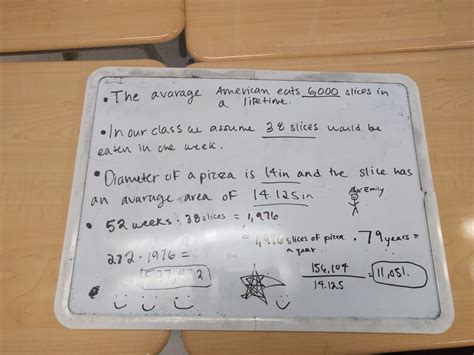 • The avarage American eats 6,000 slices in
a lifetime.
• In our class we assume 38 slices would be
eaten in one week.
• Diameter of a pizza is 14in and the slice has
an avarage area of 14.125in
Emily
• 52 weeks · 38 slices = 1,976
= 1,976 slices of pizza · 79 years =
a year
272 · 1976 =
537,472
156,104
14.125
= 11,051.